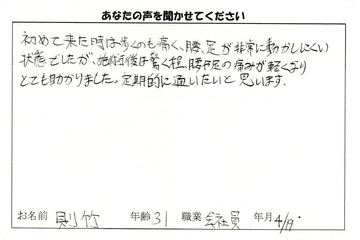 あなたの声を聞かせてください
初めて来た時は歩くのも痛く、腰、足が非常に動かしにくい
状態でしたが、施術後は驚く程、腰、足の痛みが軽くなり
とても助かりました。定期的に通いたいと思います。
お名前 則竹 年齢 31 職業 会社員 年月 4/9.